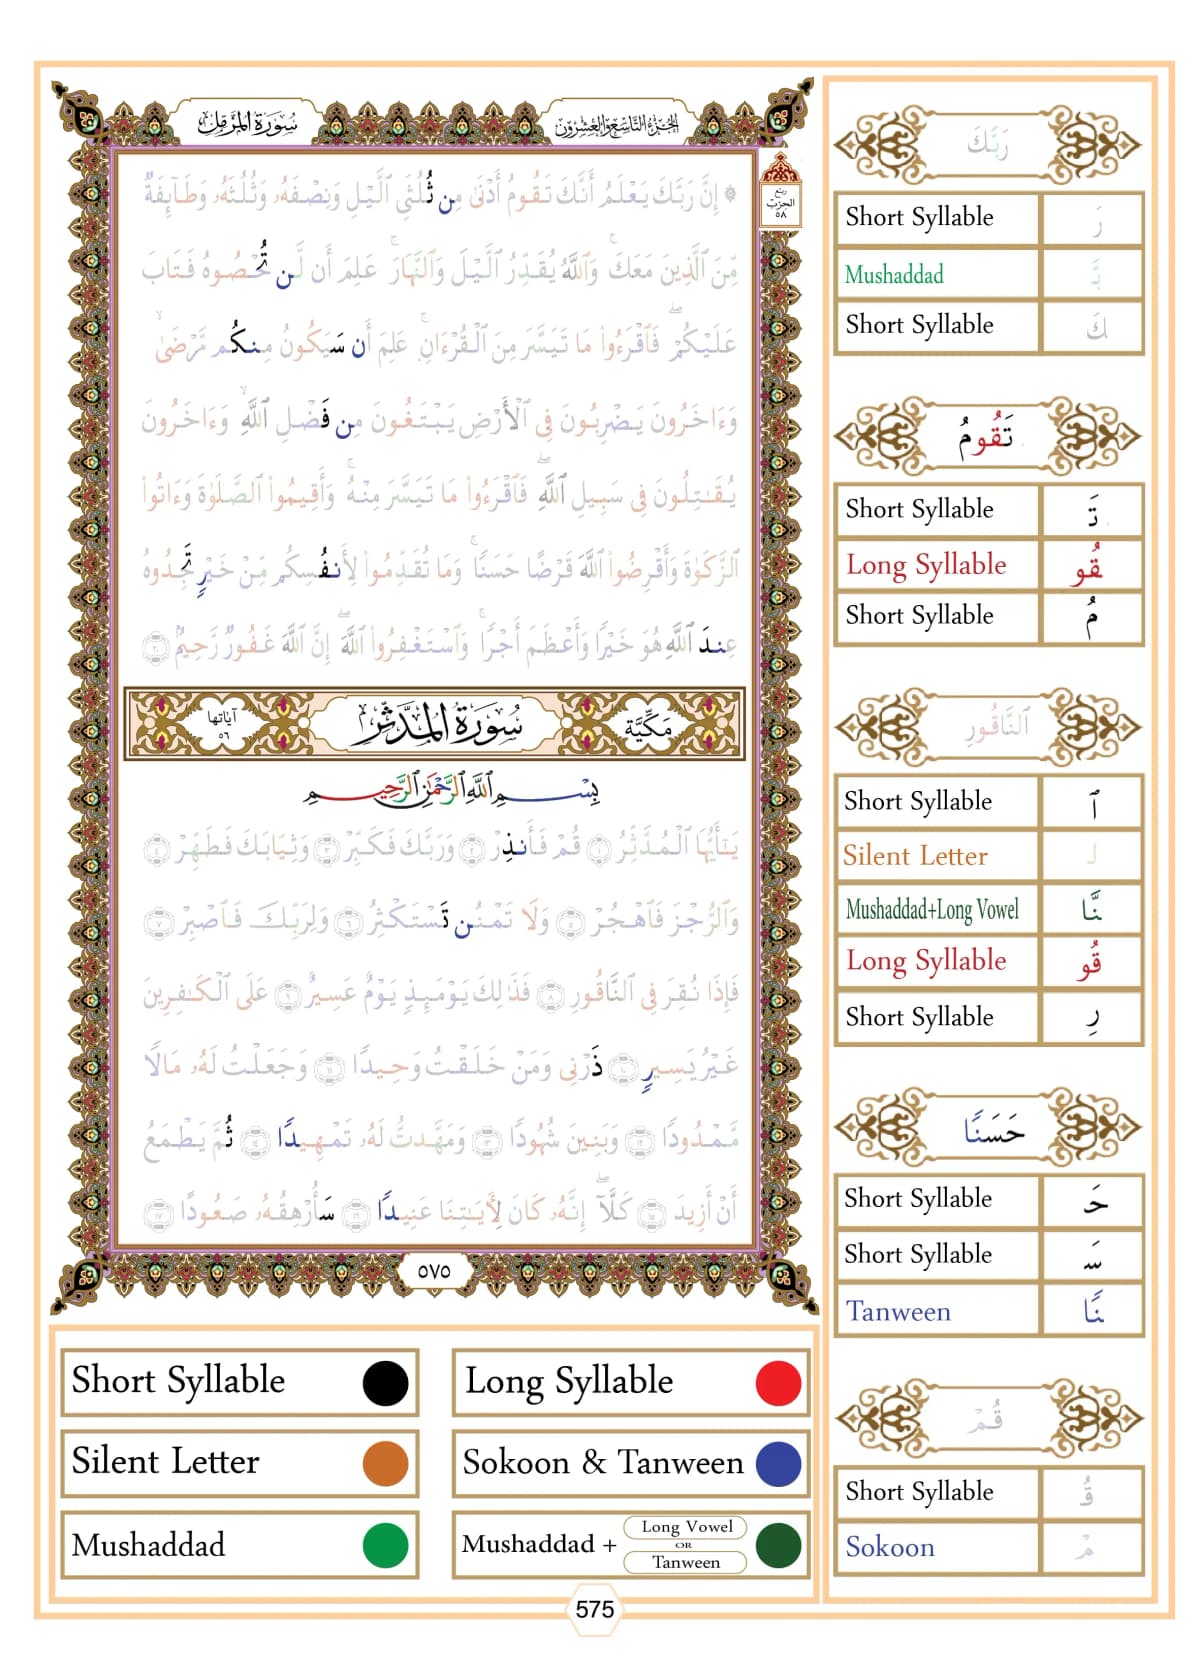 سُورَةُ المُزَّمِّل
الجُزْءُ التَّاسِعُ وَالعِشْرُونَ
ربع
الحزب
٥٨
۞ إِنَّ رَبَّكَ يَعْلَمُ أَنَّكَ تَقُومُ أَدْنَىٰ مِن ثُلُثَيِ ٱلَّيْلِ وَنِصْفَهُۥ وَثُلُثَهُۥ وَطَآئِفَةٌ
مِّنَ ٱلَّذِينَ مَعَكَۚ وَٱللَّهُ يُقَدِّرُ ٱلَّيْلَ وَٱلنَّهَارَۚ عَلِمَ أَن لَّن تُحْصُوهُ فَتَابَ
عَلَيْكُمْۖ فَٱقْرَءُوا۟ مَا تَيَسَّرَ مِنَ ٱلْقُرْءَانِۚ عَلِمَ أَن سَيَكُونُ مِنكُم مَّرْضَىٰۙ
وَءَاخَرُونَ يَضْرِبُونَ فِى ٱلْأَرْضِ يَبْتَغُونَ مِن فَضْلِ ٱللَّهِۙ وَءَاخَرُونَ
يُقَـٰتِلُونَ فِى سَبِيلِ ٱللَّهِۖ فَٱقْرَءُوا۟ مَا تَيَسَّرَ مِنْهُۚ وَأَقِيمُوا۟ ٱلصَّلَوٰةَ وَءَاتُوا۟
ٱلزَّكَوٰةَ وَأَقْرِضُوا۟ ٱللَّهَ قَرْضًا حَسَنًاۚ وَمَا تُقَدِّمُوا۟ لِأَنفُسِكُم مِّنْ خَيْرٍ تَجِدُوهُ
عِندَ ٱللَّهِ هُوَ خَيْرًا وَأَعْظَمَ أَجْرًاۚ وَٱسْتَغْفِرُوا۟ ٱللَّهَۖ إِنَّ ٱللَّهَ غَفُورٌ رَّحِيمٌۢ ٢٠
مَكِّيَّة
سُورَةُ المُدَّثِّر
آيَاتُهَا
٥٦
بِسْمِ ٱللَّهِ ٱلرَّحْمَـٰنِ ٱلرَّحِيمِ
يَـٰٓأَيُّهَا ٱلْمُدَّثِّرُ ١ قُمْ فَأَنذِرْ ٢ وَرَبَّكَ فَكَبِّرْ ٣ وَثِيَابَكَ فَطَهِّرْ ٤
وَٱلرُّجْزَ فَٱهْجُرْ ٥ وَلَا تَمْنُن تَسْتَكْثِرُ ٦ وَلِرَبِّكَ فَٱصْبِرْ ٧
فَإِذَا نُقِرَ فِى ٱلنَّاقُورِ ٨ فَذَٰلِكَ يَوْمَئِذٍ يَوْمٌ عَسِيرٌ ٩ عَلَى ٱلْكَـٰفِرِينَ
غَيْرُ يَسِيرٍ ١٠ ذَرْنِى وَمَنْ خَلَقْتُ وَحِيدًا ١١ وَجَعَلْتُ لَهُۥ مَالًا
مَّمْدُودًا ١٢ وَبَنِينَ شُهُودًا ١٣ وَمَهَّدتُّ لَهُۥ تَمْهِيدًا ١٤ ثُمَّ يَطْمَعُ
أَنْ أَزِيدَ ١٥ كَلَّآۖ إِنَّهُۥ كَانَ لِـَٔايَـٰتِنَا عَنِيدًا ١٦ سَأُرْهِقُهُۥ صَعُودًا ١٧
٥٧٥
Short Syllable
Long Syllable
Silent Letter
Sokoon & Tanween
Mushaddad
Mushaddad + Long Vowel OR Tanween
575
رَبَّكَ
Short Syllable رَ
Mushaddad بَّ
Short Syllable كَ
تَقُومُ
Short Syllable تَ
Long Syllable قُو
Short Syllable مُ
ٱلنَّاقُورِ
Short Syllable ٱ
Silent Letter لـ
Mushaddad+Long Vowel نَّا
Long Syllable قُو
Short Syllable رِ
حَسَنًا
Short Syllable حَـ
Short Syllable سَـ
Tanween نًا
قُمْ
Short Syllable قُـ
Sokoon مْ